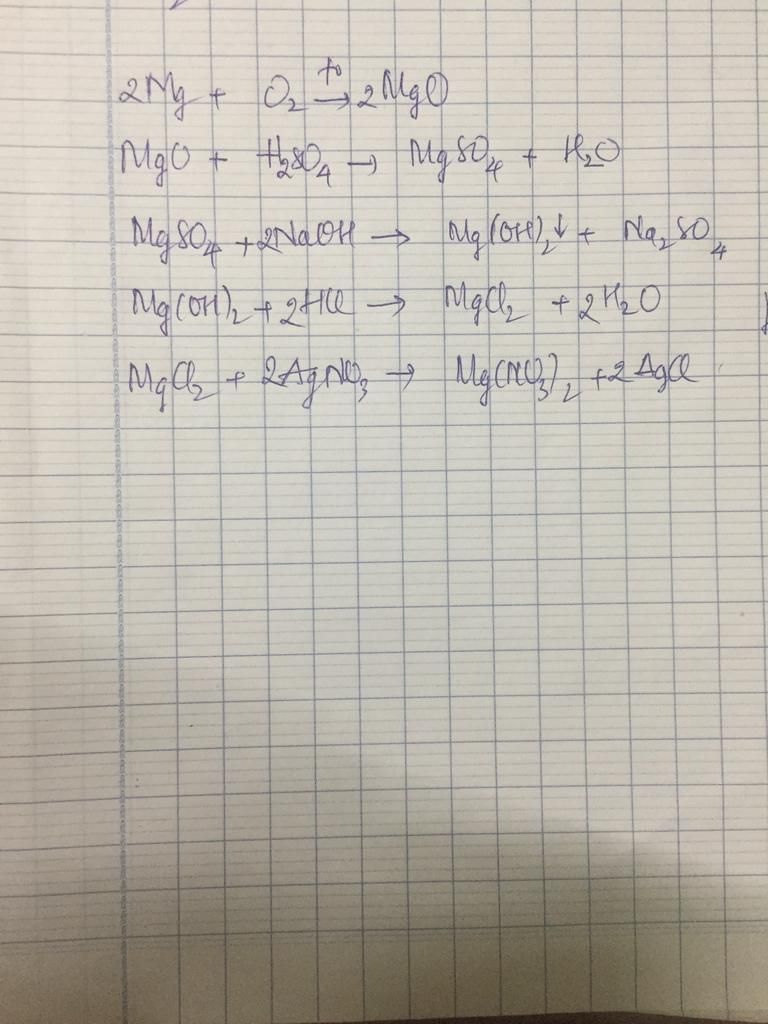 2Mg + O₂ →(t⁰) 2MgO
MgO + H₂SO₄ → MgSO₄ + H₂O
MgSO₄ + 2NaOH → Mg(OH)₂↓ + Na₂SO₄
Mg(OH)₂ + 2HCl → MgCl₂ + 2H₂O
MgCl₂ + 2AgNO₃ → Mg(NO₃)₂ + 2AgCl